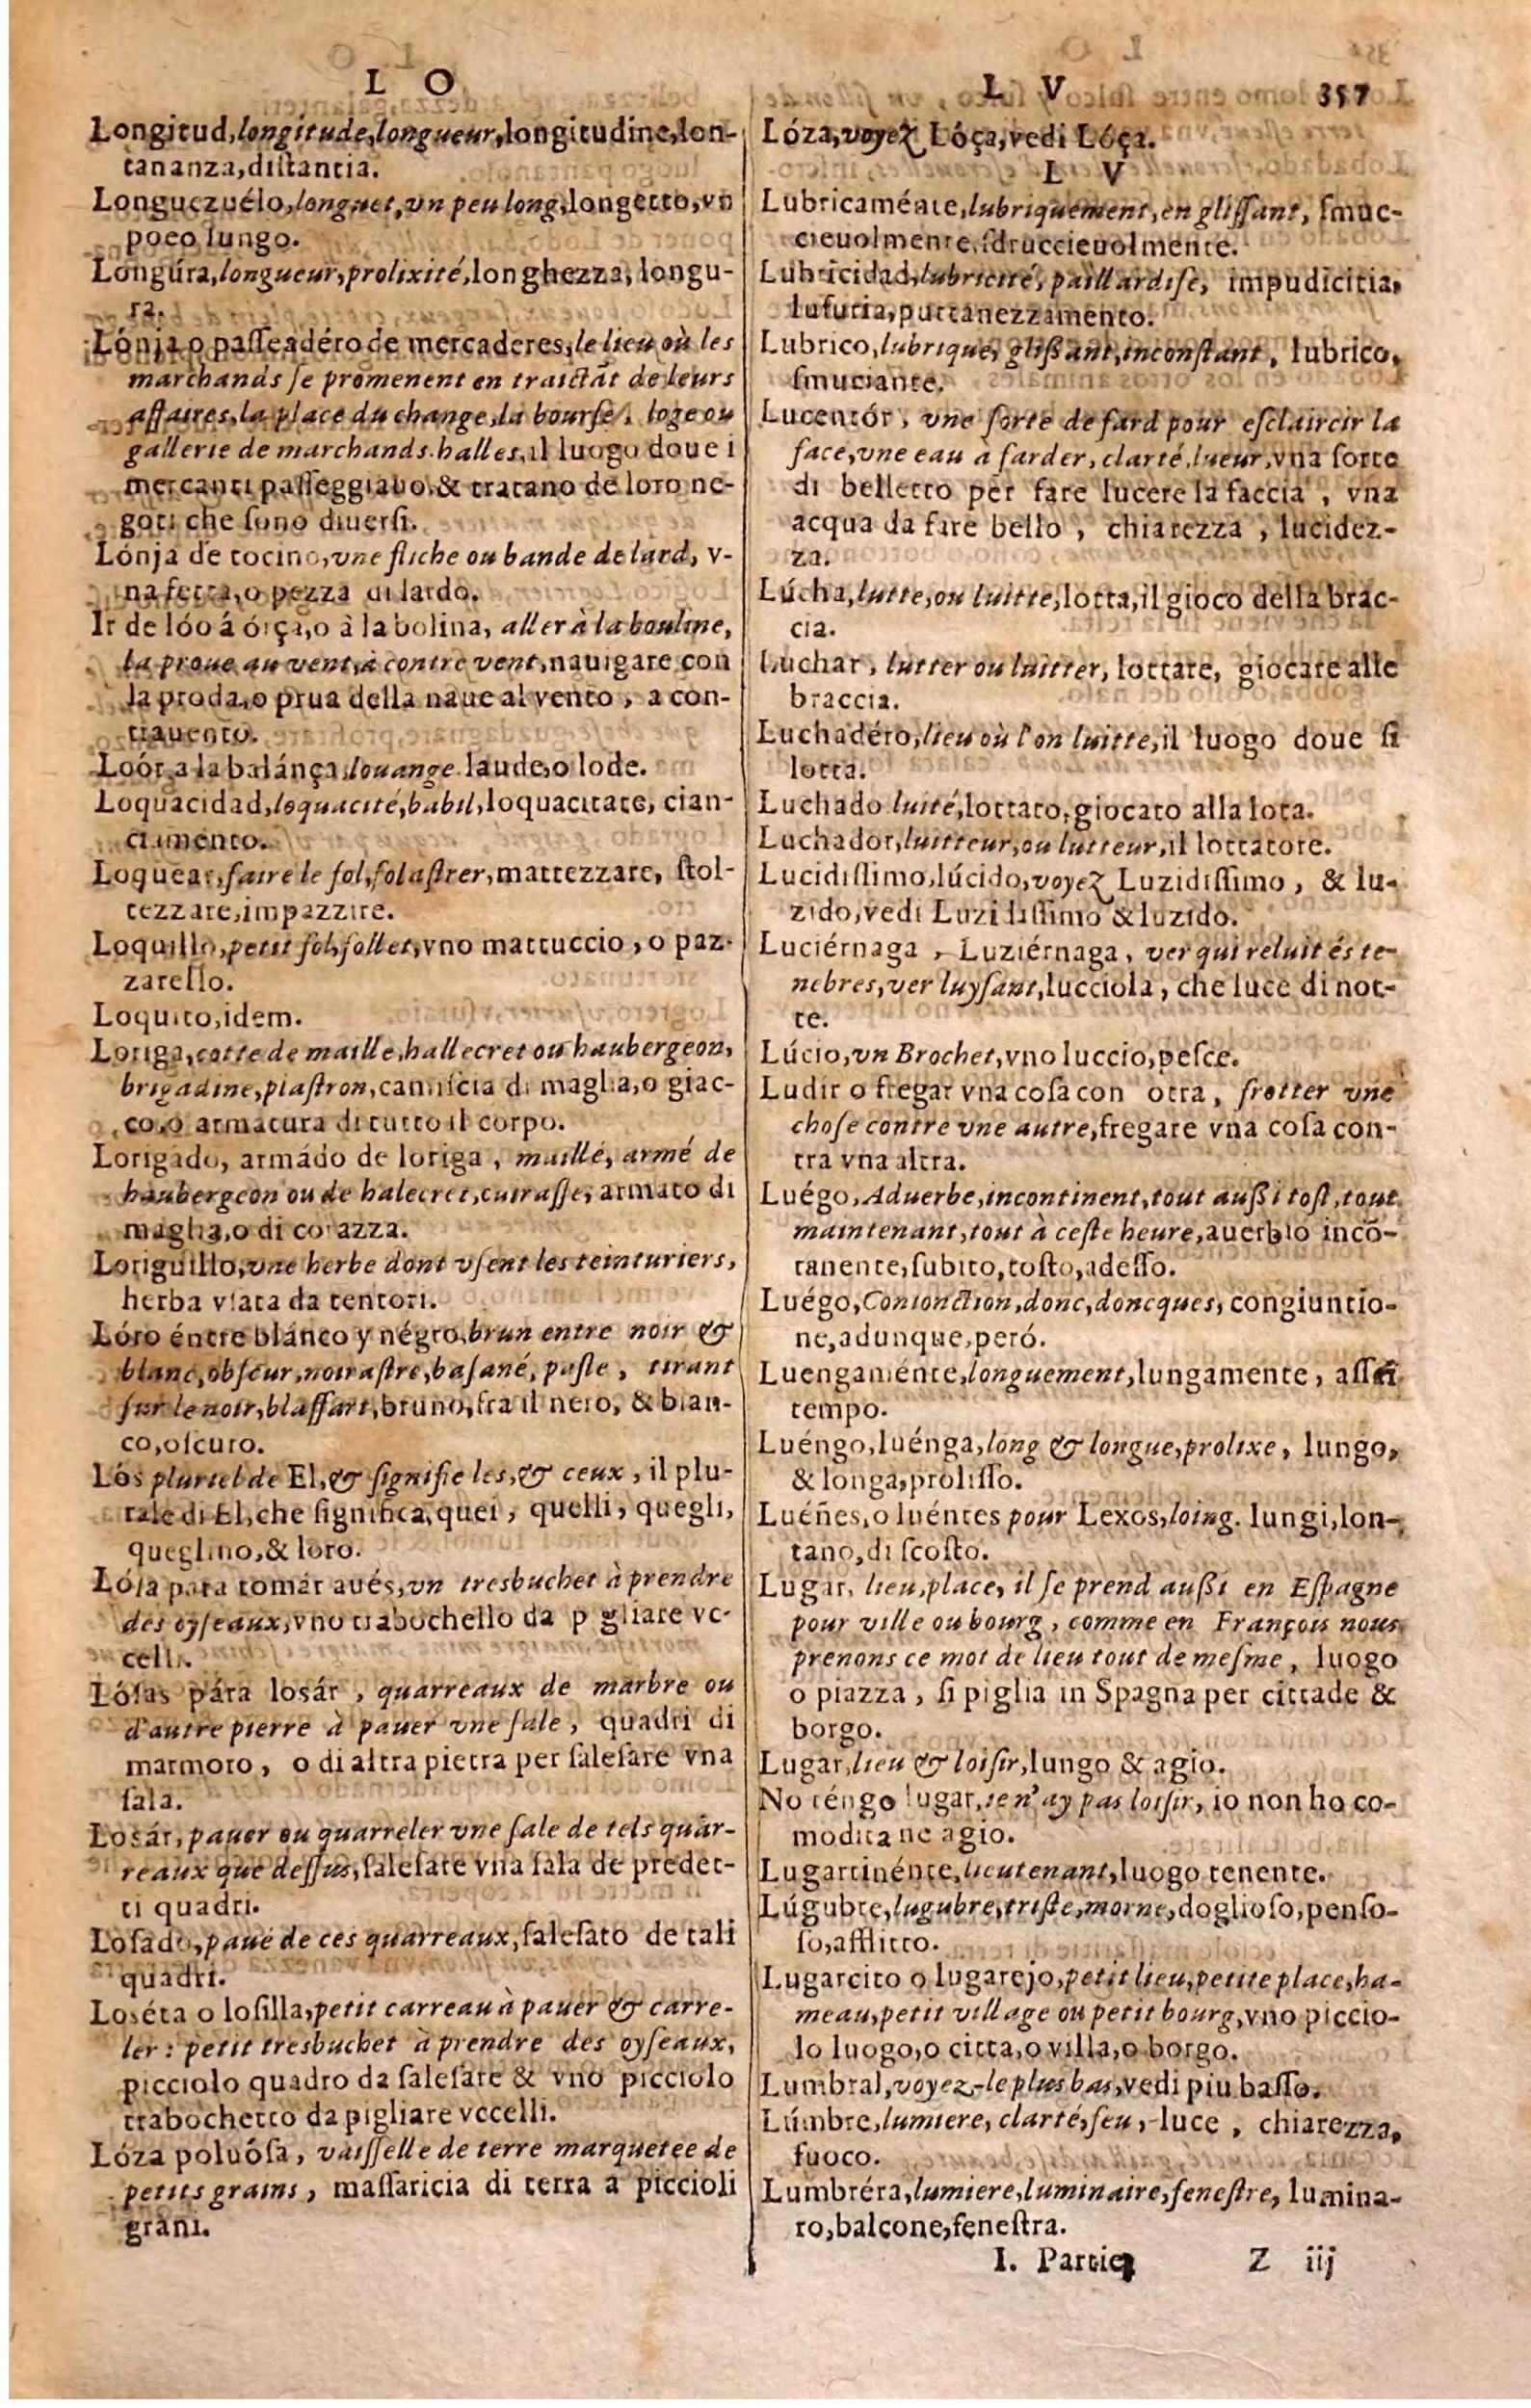 L O
Longitud, longitude, longueur, longitudine, lon-
tananza, distantia.
Longuezuélo, longuet, vn peu long, longetto, vn
poco lungo.
Longúra, longueur, prolixité, longhezza, longu-
ra.
Lónja o paſſeadéro de mercaderes, le lieu où les
marchands ſe promenent en traictāt de leurs
affaires, la place du change, la bourſe, loge ou
gallerie de marchands halles, il luogo doue i
mercanti paſſeggiabo, & tratano de loro ne-
goti che ſono diuerſi.
Lónja de tocino, vne fliche ou bande de lard, v-
na fetta, o pezza di lardo.
Ir de lóo á órça, o à la bolina, aller à la bouline,
la proue au vent, à contre vent, nauigare con
la proda, o prua della naue al vento, a con-
trauento.
Loór, a la balánça, louange laude, o lode.
Loquacidad, loquacité, babil, loquacitate, cian-
ciamento.
Loquear, faire le fol, folaſtrer, mattezzare, ſtol-
tezzare, impazzire.
Loquillo, petit fol, follet, vno mattuccio, o paz-
zarello.
Loquito, idem.
Loriga, cotte de maille, hallecret ou haubergeon,
brigadine, plaſtron, camiſcia di maglia, o giac-
co, o armatura di tutto il corpo.
Lorigado, armádo de loriga, maillé, armé de
haubergeon ou de halecret, cuiraſſe, armato di
maglia, o di corazza.
Loriguillo, vne herbe dont vſent les teinturiers,
herba vſata da tentori.
Lóro éntre blánco y négro, brun entre noir &
blanc, obſcur, noiraſtre, baſané, paſle, tirant
ſur le noir, blaffart, bruno, fra il nero, & bian-
co, oſcuro.
Lós pluriel de El, & ſignifie les, & ceux, il plu-
rale di El, che ſignifica, quei, quelli, quegli,
queglino, & loro.
Lóſa para tomár aués, vn tresbuchet à prendre
des oyſeaux, vno trabochello da pigliare vc-
celli.
Lóſas pára losár, quarreaux de marbre ou
d'autre pierre à pauer vne ſale, quadri di
marmoro, o di altra pietra per ſaleſare vna
ſala.
Losár, pauer ou quarreler vne ſale de tels quar-
reaux que deſſus, ſaleſare vna ſala de predet-
ti quadri.
Loſado, paué de ces quarreaux, ſaleſato de tali
quadri.
Loséta o loſilla, petit carreau à pauer & carre-
ler : petit tresbuchet à prendre des oyſeaux,
picciolo quadro da ſaleſare & vno picciolo
trabochetto da pigliare vccelli.
Lóza poluóſa, vaiſſelle de terre marquetee de
petits grains, maſſaricia di terra a piccioli
grani.
L V 357
Lóza, voyez Lóça, vedi Lóça.
L V
Lubricaménte, lubriquement, en gliſſant, ſmuc-
cieuolmente, ſdruccieuolmente.
Lubricidad, lubricité, paillardiſe, impudicitia,
lufuria, puttanezzamento.
Lubrico, lubrique, glißant, inconſtant, lubrico,
ſmuciante.
Lucentór, vne ſorte de fard pour eſclaircir la
face, vne eau à farder, clarté, lueur, vna ſorte
di belletto per fare lucere la faccia, vna
acqua da fare bello, chiarezza, lucidez-
za.
Lúcha, lutte, ou luitte, lotta, il gioco della brac-
cia.
Luchar, lutter ou luitter, lottare, giocare alle
braccia.
Luchadéro, lieu où l'on luitte, il luogo doue ſi
lotta.
Luchado luité, lottato, giocato alla lota.
Luchador, luitteur, ou lutteur, il lottatore.
Lucidiſſimo, lúcido, voyez Luzidiſſimo, & lu-
zido, vedi Luzidiſſimo & luzido.
Luciérnaga, Luziérnaga, ver qui reluit és te-
nebres, ver luyſant, lucciola, che luce di not-
te.
Lúcio, vn Brochet, vno luccio, peſce.
Ludir o fregar vna coſa con otra, frotter vne
choſe contre vne autre, fregare vna coſa con-
tra vna altra.
Luégo, Aduerbe, incontinent, tout außi toſt, tout
maintenant, tout à ceſte heure, auerbio incō-
tanente, ſubito, toſto, adeſſo.
Luégo, Conionction, donc, doncques, congiuntio-
ne, adunque, peró.
Luengaménte, longuement, lungamente, aſſai
tempo.
Luéngo, luénga, long & longue, prolixe, lungo,
& longa, proliſſo.
Luéñes, o luéntes pour Lexos, loing. lungi, lon-
tano, di ſcoſto.
Lugar, lieu, place, il ſe prend außi en Eſpagne
pour ville ou bourg, comme en François nous
prenons ce mot de lieu tout de meſme, luogo
o piazza, ſi piglia in Spagna per cittade &
borgo.
Lugar, lieu & loiſir, lungo & agio.
No téngo lugar, ie n'ay pas loiſir, io non ho co-
modita ne agio.
Lugartinénte, lieutenant, luogo tenente.
Lúgubre, lugubre, triſte, morne, doglioſo, penſo-
ſo, afflitto.
Lugarcito o lugarejo, petit lieu, petite place, ha-
meau, petit village ou petit bourg, vno piccio-
lo luogo, o citta, o villa, o borgo.
Lumbral, voyez-le plus bas, vedi piu baſſo.
Lúmbre, lumiere, clarté, feu, luce, chiarezza,
fuoco.
Lumbréra, lumiere, luminaire, feneſtre, lumina-
ro, balcone, feneſtra.
I. Partie, Z iij